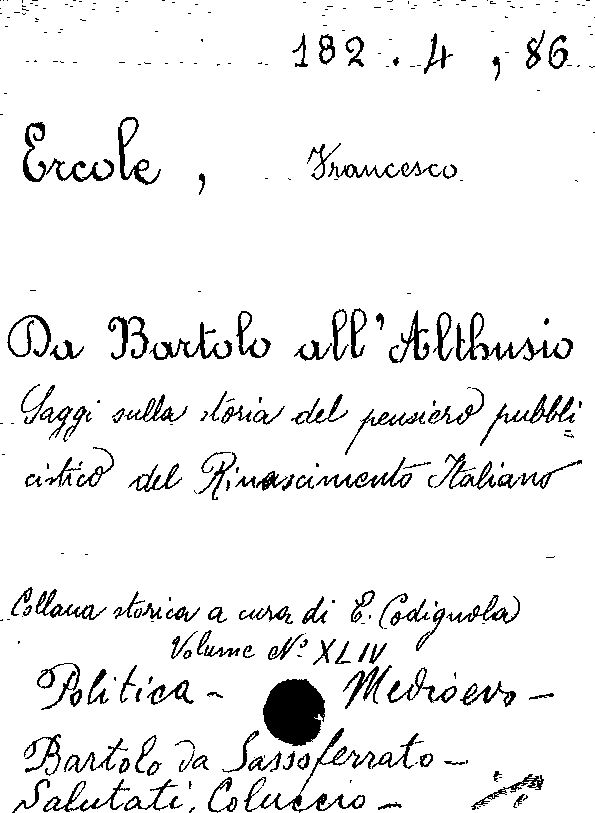 182 . 4 , 86
Ercole , Francesco
Da Bartolo all'Althusio
Saggi sulla storia del pensiero pubbli=
cistico del Rinascimento Italiano
Collana storica a cura di E. Codignola
Volume Nº XLIV
Politica - Medioevo -
Bartolo da Sassoferrato -
Salutati, Coluccio -